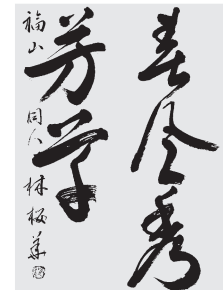 春风秀
芳草
福山 同人 林桜華